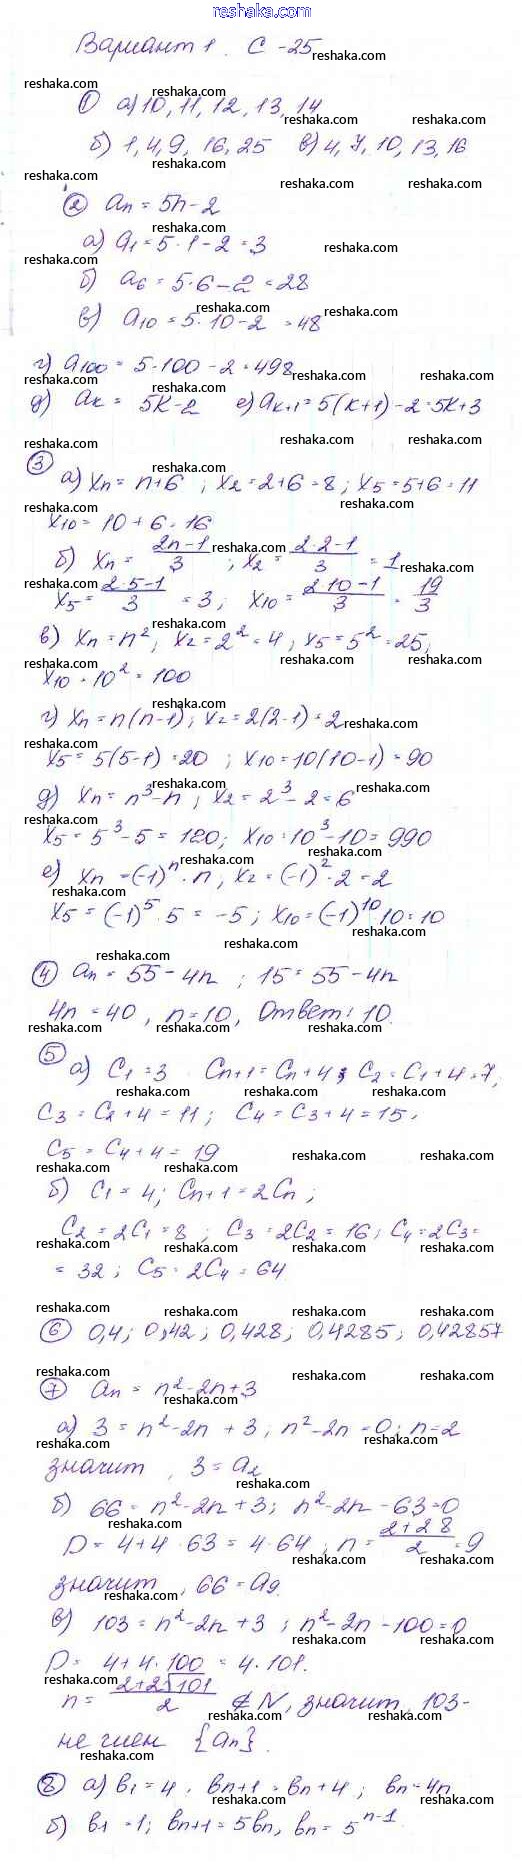 reshaka.com
Вариант 1. С-25
① а) 10, 11, 12, 13, 14
б) 1, 4, 9, 16, 25 в) 4, 7, 10, 13, 16
② an = 5n - 2
а) a1 = 5 · 1 - 2 = 3
б) a6 = 5 · 6 - 2 = 28
в) a10 = 5 · 10 - 2 = 48
г) a100 = 5 · 100 - 2 = 498
д) ak = 5k - 2 е) ak+1 = 5(k+1) - 2 = 5k + 3
③ а) xn = n + 6 ; x2 = 2 + 6 = 8 ; x5 = 5 + 6 = 11
x10 = 10 + 6 = 16
б) xn = (2n - 1)/3 ; x2 = (2·2 - 1)/3 = 1
x5 = (2·5 - 1)/3 = 3 ; x10 = (2·10 - 1)/3 = 19/3
в) xn = n² ; x2 = 2² = 4 ; x5 = 5² = 25,
x10 = 10² = 100
г) xn = n(n-1) ; x2 = 2(2-1) = 2
x5 = 5(5-1) = 20 ; x10 = 10(10-1) = 90
д) xn = n³ - n ; x2 = 2³ - 2 = 6
x5 = 5³ - 5 = 120 ; x10 = 10³ - 10 = 990
е) xn = (-1)ⁿ · n ; x2 = (-1)² · 2 = 2
x5 = (-1)⁵ · 5 = -5 ; x10 = (-1)¹⁰ · 10 = 10
④ an = 55 - 4n ; 15 = 55 - 4n
4n = 40, n = 10, Ответ: 10.
⑤ а) C1 = 3 Cn+1 = Cn + 4 ; C2 = C1 + 4 = 7,
C3 = C2 + 4 = 11 ; C4 = C3 + 4 = 15,
C5 = C4 + 4 = 19
б) C1 = 4 ; Cn+1 = 2Cn ;
C2 = 2C1 = 8 ; C3 = 2C2 = 16 ; C4 = 2C3 =
= 32 ; C5 = 2C4 = 64
⑥ 0,4 ; 0,42 ; 0,428 ; 0,4285 ; 0,42857
⑦ an = n² - 2n + 3
а) 3 = n² - 2n + 3 ; n² - 2n = 0 ; n = 2
значит, 3 = a2
б) 66 = n² - 2n + 3 ; n² - 2n - 63 = 0
D = 4 + 4 · 63 = 4 · 64 ; n = (2 + 2·8)/2 = 9
значит, 66 = a9.
в) 103 = n² - 2n + 3 ; n² - 2n - 100 = 0
D = 4 + 4 · 100 = 4 · 101.
n = (2 + 2√101)/2 ∉ N, значит, 103 -
не член {an}.
⑧ а) b1 = 4, bn+1 = bn + 4 ; bn = 4n
б) b1 = 1 ; bn+1 = 5bn, bn = 5ⁿ⁻¹.